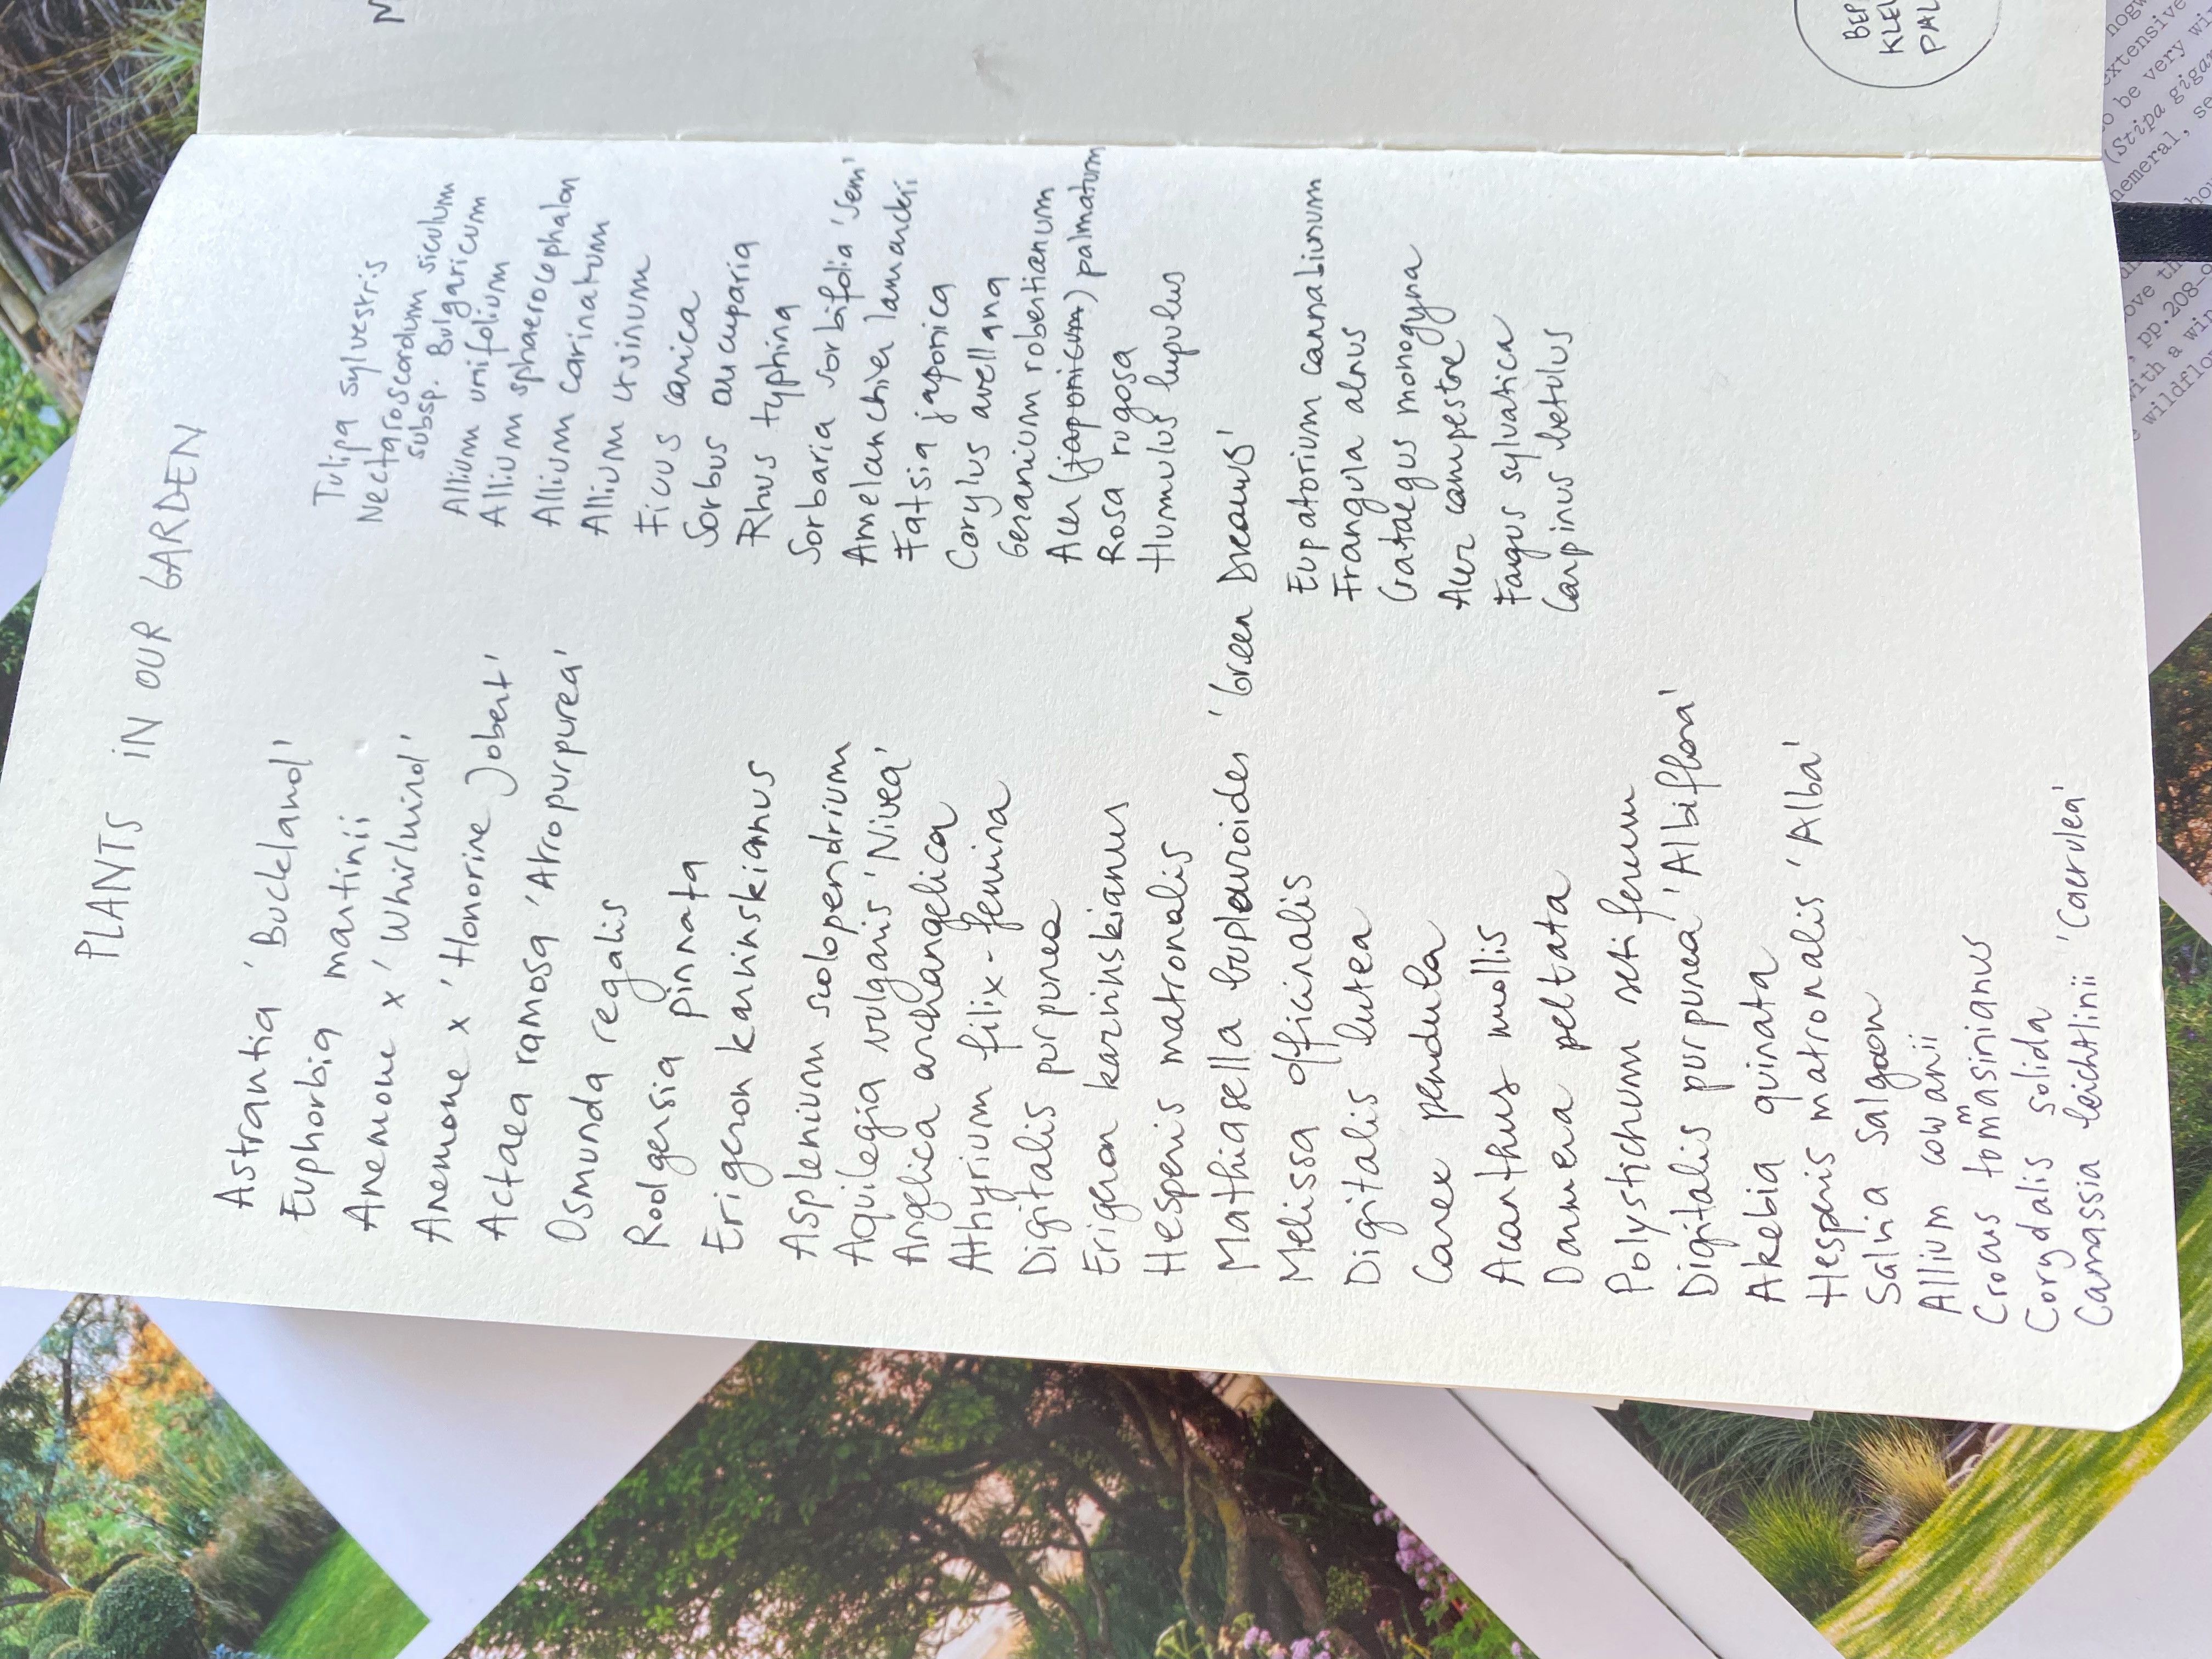 PLANTS IN OUR GARDEN
Astrantia 'Buckland'
Euphorbia martinii
Anemone x 'Whirlwind'
Anemone x 'Honorine Jobert'
Actaea ramosa 'Atropurpurea'
Osmunda regalis
Rodgersia pinnata
Erigeron karvinskianus
Asplenium scolopendrium
Aquilegia vulgaris 'Nivea'
Angelica archangelica
Athyrium filix-femina
Digitalis purpurea
Erigeron karvinskianus
Hesperis matronalis
Mathiasella bupleuroides 'Green Dreams'
Melissa officinalis
Digitalis lutea
Carex pendula
Acanthus mollis
Darmera peltata
Polystichum setiferum
Digitalis purpurea 'Albiflora'
Akebia quinata
Hesperis matronalis 'Alba'
Salvia salgoon
Allium cowanii
Crocus tommasinianus
Corydalis solida
Camassia leichtlinii 'Caerulea'
Tulipa sylvestris
Nectaroscordum siculum
subsp. Bulgaricum
Allium unifolium
Allium sphaerocephalon
Allium carinatum
Allium ursinum
Ficus carica
Sorbus aucuparia
Rhus typhina
Sorbaria sorbifolia 'Sem'
Amelanchier lamarckii
Fatsia japonica
Corylus avellana
Geranium robertianum
Acer (japonicum) palmatum
Rosa rugosa
Humulus lupulus
Eupatorium cannabinum
Frangula alnus
Crataegus monogyna
Acer campestre
Fagus sylvatica
Carpinus betulus
BEP
KLE
PAL
extensive
to be very wi
(Stipa gigan
hemeral, se
pp.208-
with a win
wildflo